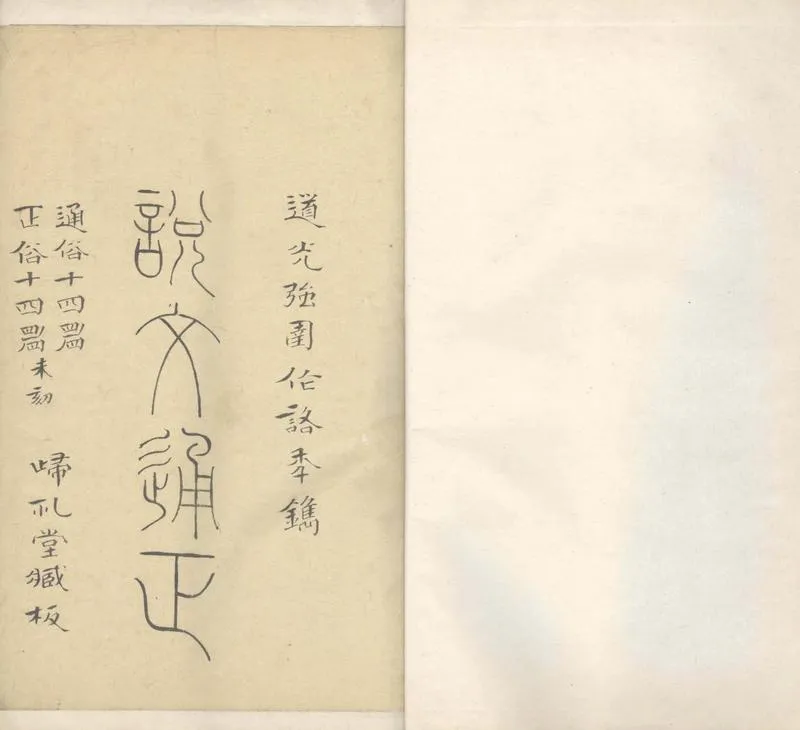 道光強圉作詻秊鐫
說文通正
通俗十四
正俗十四未刻
歸礼堂臧板